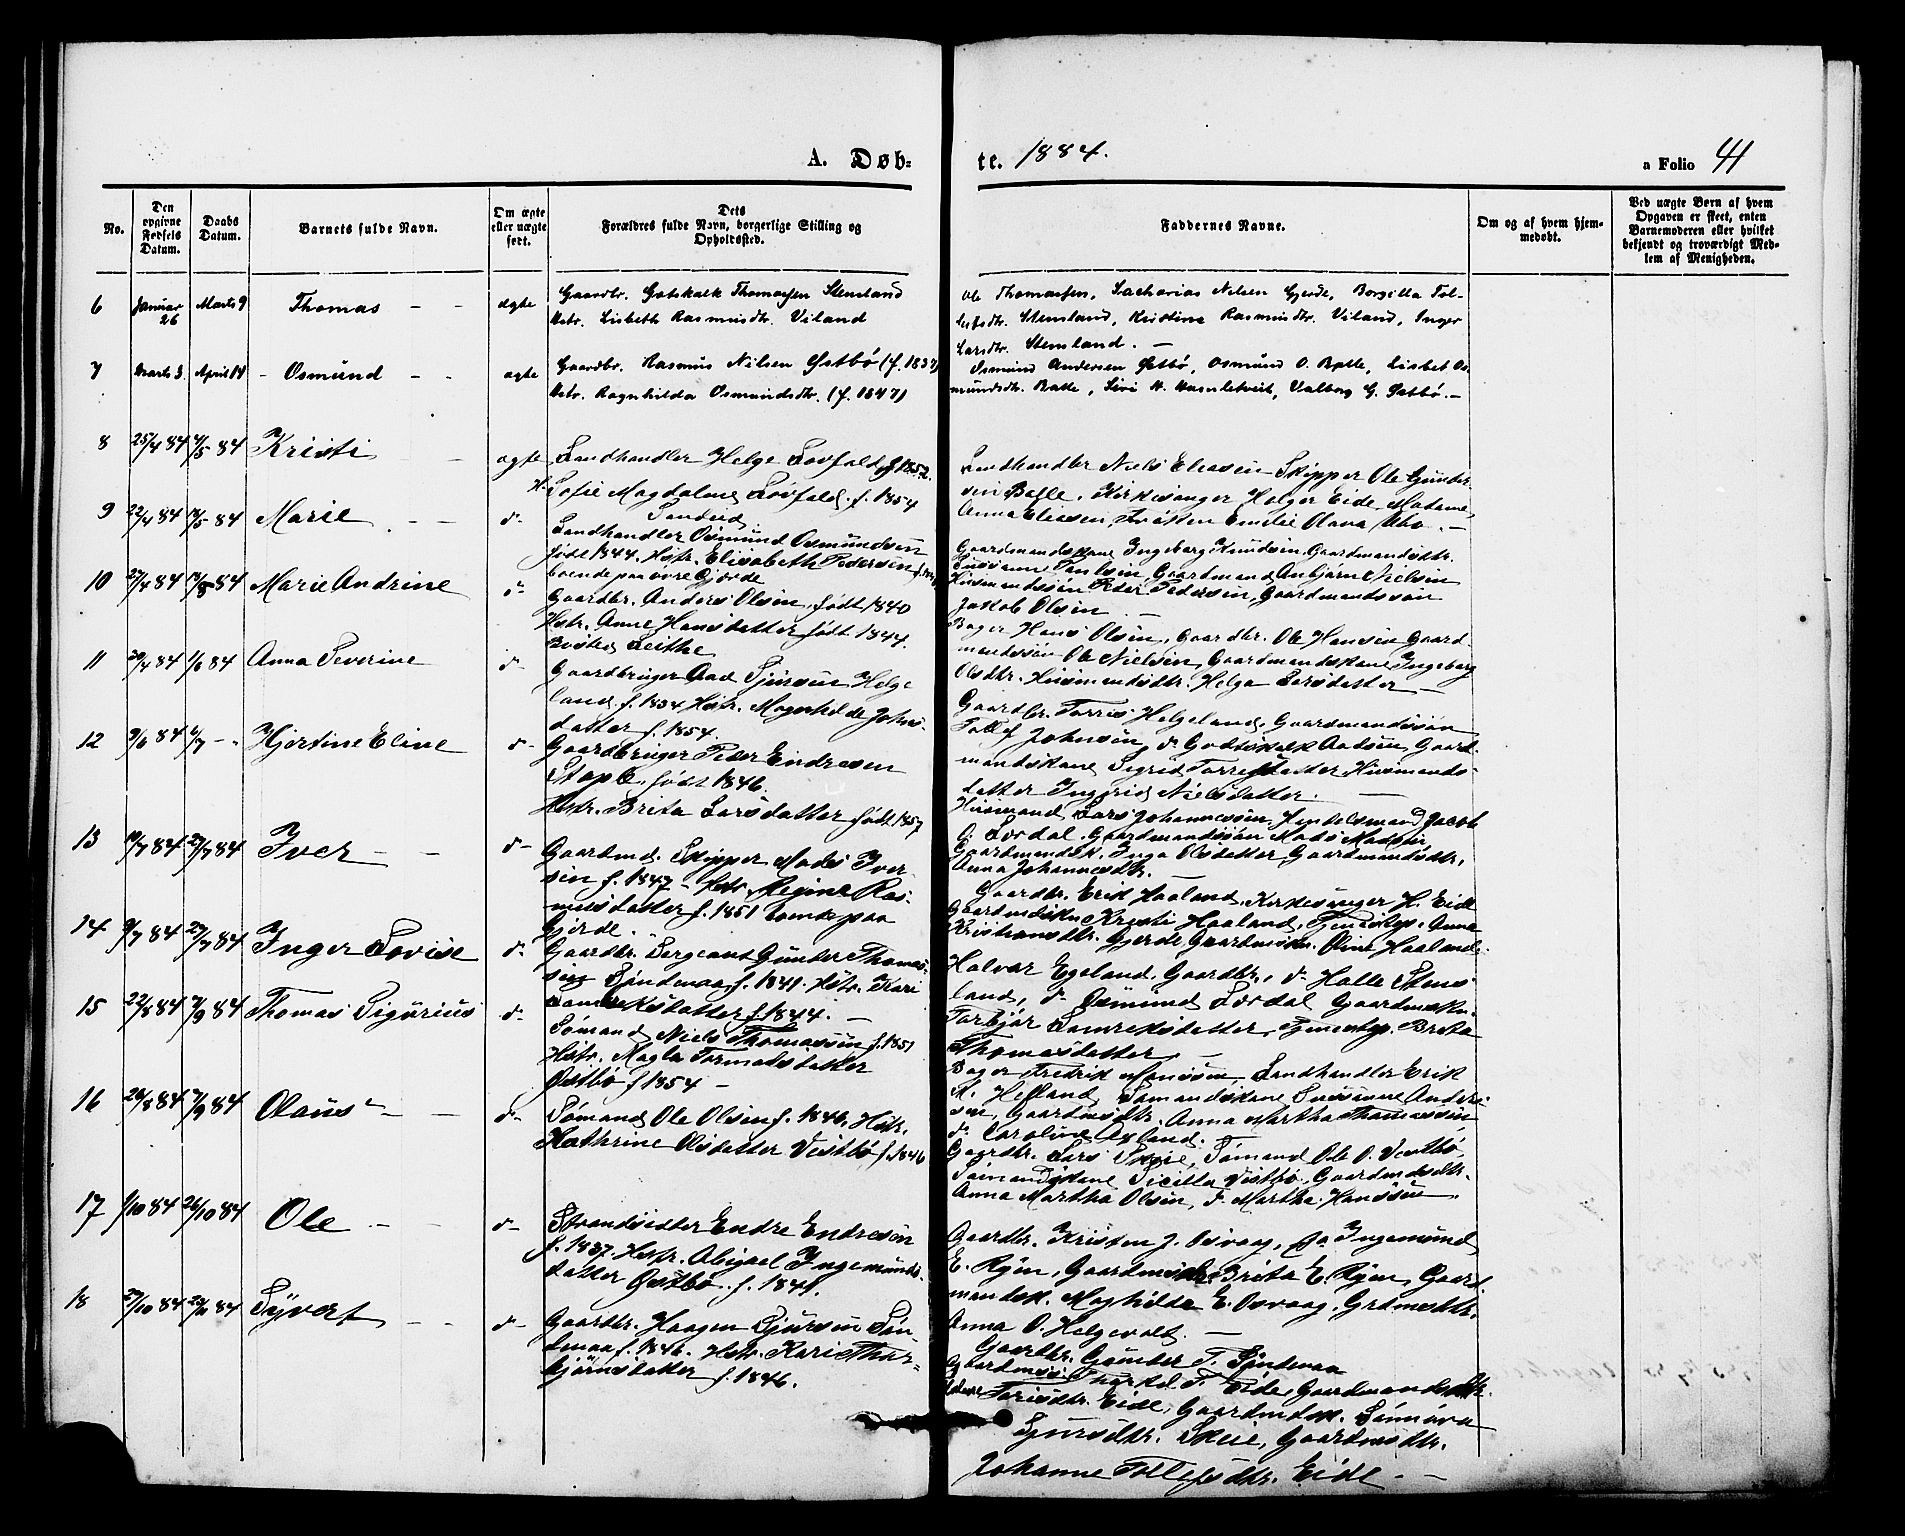 A. Døb-
te. 1884.
a Folio 41
No.
Den opgivne Fødsels Datum.
Daabs Datum.
Barnets fulde Navn.
Om ægte eller uægte født.
Dets Forældres fulde Navn, borgerlige Stilling og Opholdssted.
Faddernes Navne.
Om og af hvem hjemmedøbt.
Ved uægte Børn af hvem Opgaven er skeet, enten Barnemoderen eller hvilket bekjendt og troværdigt Medlem af Menigheden.
6 Januar 26 Marts 9 Thomas - - ægte
Gaardbr. Gotskalk Thomassen Stensland
Hstr. Lisbeth Rasmusdtr. Viland
Ole Thomassen, Sacharias Nilsen Gjerde, Borgilla Tol-
lefsdtr. Stensland, Kristine Rasmusdtr. Viland, Inger
Larsdtr. Stensland. -
7 Marts 3. April 14 - Osmund - - ægte
Gaardbr. Rasmus Nilsen Østbø (f. 1837)
Hstr. Ragnhilda Osmundsdtr. (f. 1847)
Osmund Andersen Østbø, Osmund O. Batle, Lisbet Os-
mundsdtr. Batle, Siri H. Valborg G. Østbø. -
8 25/4 84 4/5 84 Kristi - ægte
Landhandler Helge Lovfald f. 1852.
H. Sofie Magdalene Lovfald. f. 1854
Sandeid
Landhandler Niels Eliasen Skipper Ole Gunder-
sen Batle, Kirkesanger Holger Eide, Madame
Anna Eliasen, Frøken Emilie Olava -
9 22/4 84 84 Marie - - d-
Landhandler Osmund Osmundsen
født 1844. Hstr. Elisabeth Pedersen
boende paa øvre Gjerde
Gaardmandskone Ingeborg Knudsen, Gaardmandsdtr.
Susanne Paulsen, Gaardmand Anbjørn Nielsen
Husmandssøn Peder Pedersen, Gaardmandssøn
Jakob Olsen -
10 27/4 84 84 Marie Andrine d-
Gaardbr. Anders Olsen, født 1840
Hstr. Anne Hansdatter født 1844.
Bosted Leithe
Bager Hans Olsen, Gaardbr. Ole Hansen Gaard-
mandssøn Ole Nielsen, Gaardmandskone Ingeborg
Olsdtr. Husmandsdtr. Helga Larsdatter -
11 84 1/6 84 Anna Severine d-
Gaardbruger Aad Sjursen Helge-
land f. 1834 Hstr. Magnhilde Johns-
datter f. 1854.
Gaardbr. Torris Helgeland, Gaardmandssøn
Tollef Johnsen, d- Godtskalk Aadsen, Gaard-
mandskone Sigrid Torresdatter, Husmands-
datter Ingerid Nielsdatter. -
12 9/6 84 6/7 - Hjertine Eline d-
Gaardbruger Peder Endresen
Stople, født 1846.
Hstr. Brita Larsdatter født 1857
Husmand Lars Johannessen, Handelsmand Jacob
G. Lordal. Gaardmandssøn Mads Madsen
Gaardmandsk. Inga Olsdatter, Gaardmandsdtr.
Anna Johannesdtr. -
13 84 27/7 84 Iver - - d-
Gaardmd. Skipper Mads Iver-
sen f. 1847 - Hstr. Regine Ras-
musdatter f. 1851 boende paa
Gjerde.
Gaardbr. Erik Haaland, Kirkesanger H. Eide
Gaardmdskne Kristi Haaland, Tjenestepe. Anna
Kristiansdtr. Gjerde Gaardmskn. Oline Haaland.
14 9/7 84 27/7 84 Inger Lovise d-
Gaardbr. Sergeant Gunder Thomas-
sen Søndenaa f. 1841. Hstr. Kari
Lambrektsdatter f. 1844. -
Halvar Egeland, Gaardbr., d- Halle Stens-
land, d- Osmund Lordal Gaardmskn.
Torbjør Lamreksdatter, Tjenestep. Brita
Thomasdatter -
15 22/8 84 7/9 84 Thomas Sigurius d-
Sømand Niels Thomassen f. 1851
Hstr. Magla Tormodsdatter
Østbø f. 1854 -
Bager Fredrik Monssen, Landhandler Erik
A. Helland, Sømandskone Susanne Andre-
sen, Gaardmsdtr. Anna Martha Thomassen
d- Caroline Axland.
16 26/8 84 7/9 84 Olaus - - d-
Sømand Ole Olsen f. 1846. Hstr.
Kathrine Olsdatter Vestbø f. 1846
Gaardbr. Lars Skeie, Sømand Ole O. Vestbø,
Sømandskone Sicilla Vistbø, Gaardmdsdtr.
Anna Martha Olsen, F. Martha Hanssen.
17 1/10 84 26/10 84 Ole - - d-
Strandsidder Endre Endresen
f. 1837. Hstr. Abigael Ingemunds-
datter Østbø. f. 1841.
Gaardbr. Kristen J. Osvaag, Do Ingemund
E. Røjen, Gaardmsk. Brita E. Røjen, Gaard-
mandsk. Maghilde E. Osvaag, Grdmsdtr.
Anna O. Helgevolt. -
18 27/10 84 84 Syvert - - d-
Gaardbr. Haagen Sjursen Søn-
denaa f. 1846. Hstr. Kari Thor-
bjørnsdatter f. 1846.
Gaardbr. Gunder T. Søndenaa
Gaardms. Thorkel T. Eide, Gaardmandsdtr.
Torisdtr. Eide, Gaardmdsk. Sønnøva
Sjursdtr. Skeie, Gaardmsdtr.
Johanne Tollefsdtr. Eide - -